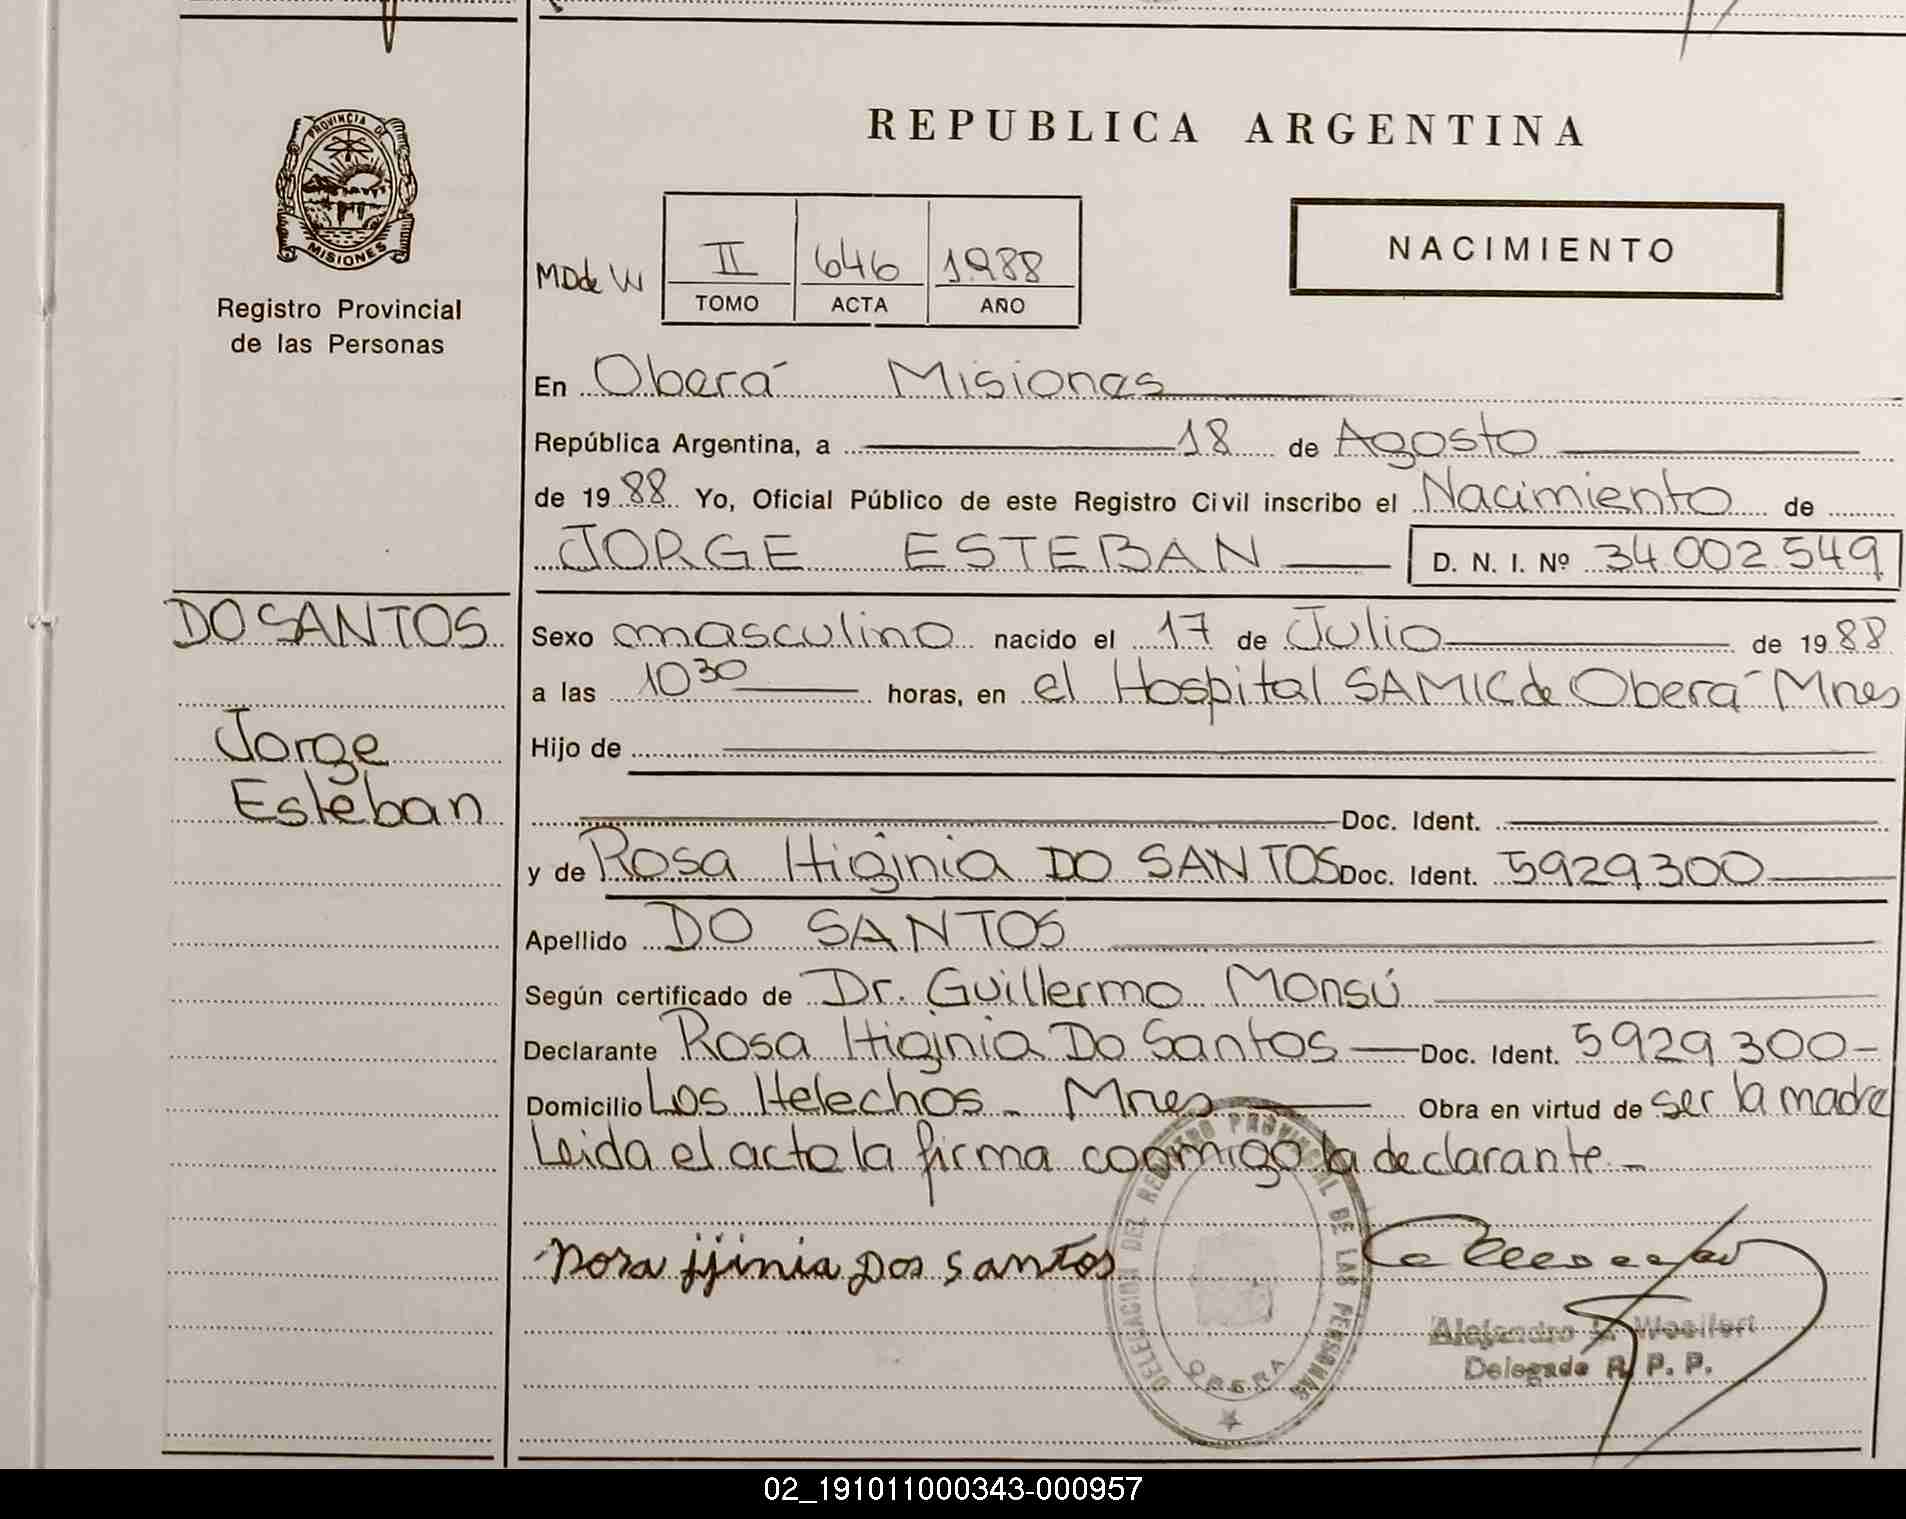 PROVINCIA DE
MISIONES
Registro Provincial
de las Personas
DO SANTOS
Jorge
Esteban
REPUBLICA ARGENTINA
MDde W
II 646 1988
TOMO ACTA AÑO
NACIMIENTO
En Oberá Misiones
República Argentina, a 18 de Agosto
de 1988 Yo, Oficial Público de este Registro Civil inscribo el Nacimiento de
JORGE ESTEBAN D. N. I. Nº 34 002 549
Sexo masculino nacido el 17 de Julio de 1988
a las 10 30 horas, en el Hospital SAMIC de Oberá Mnes
Hijo de
Doc. Ident.
y de Rosa Higinia DO SANTOS Doc. Ident. 5929300
Apellido DO SANTOS
Según certificado de Dr. Guillermo Monsú
Declarante Rosa Higinia Do Santos Doc. Ident. 5929300-
Domicilio Los Helechos - Mnes Obra en virtud de ser la madre
Leida el acta la firma conmigo la declarante.-
Rosa ijinia Dos santos
DELEGACION DEL REGISTRO PROVINCIAL DE LAS PERSONAS
OBERA
Alejandro Woelfert
Delegado R. P. P.
02_191011000343-000957